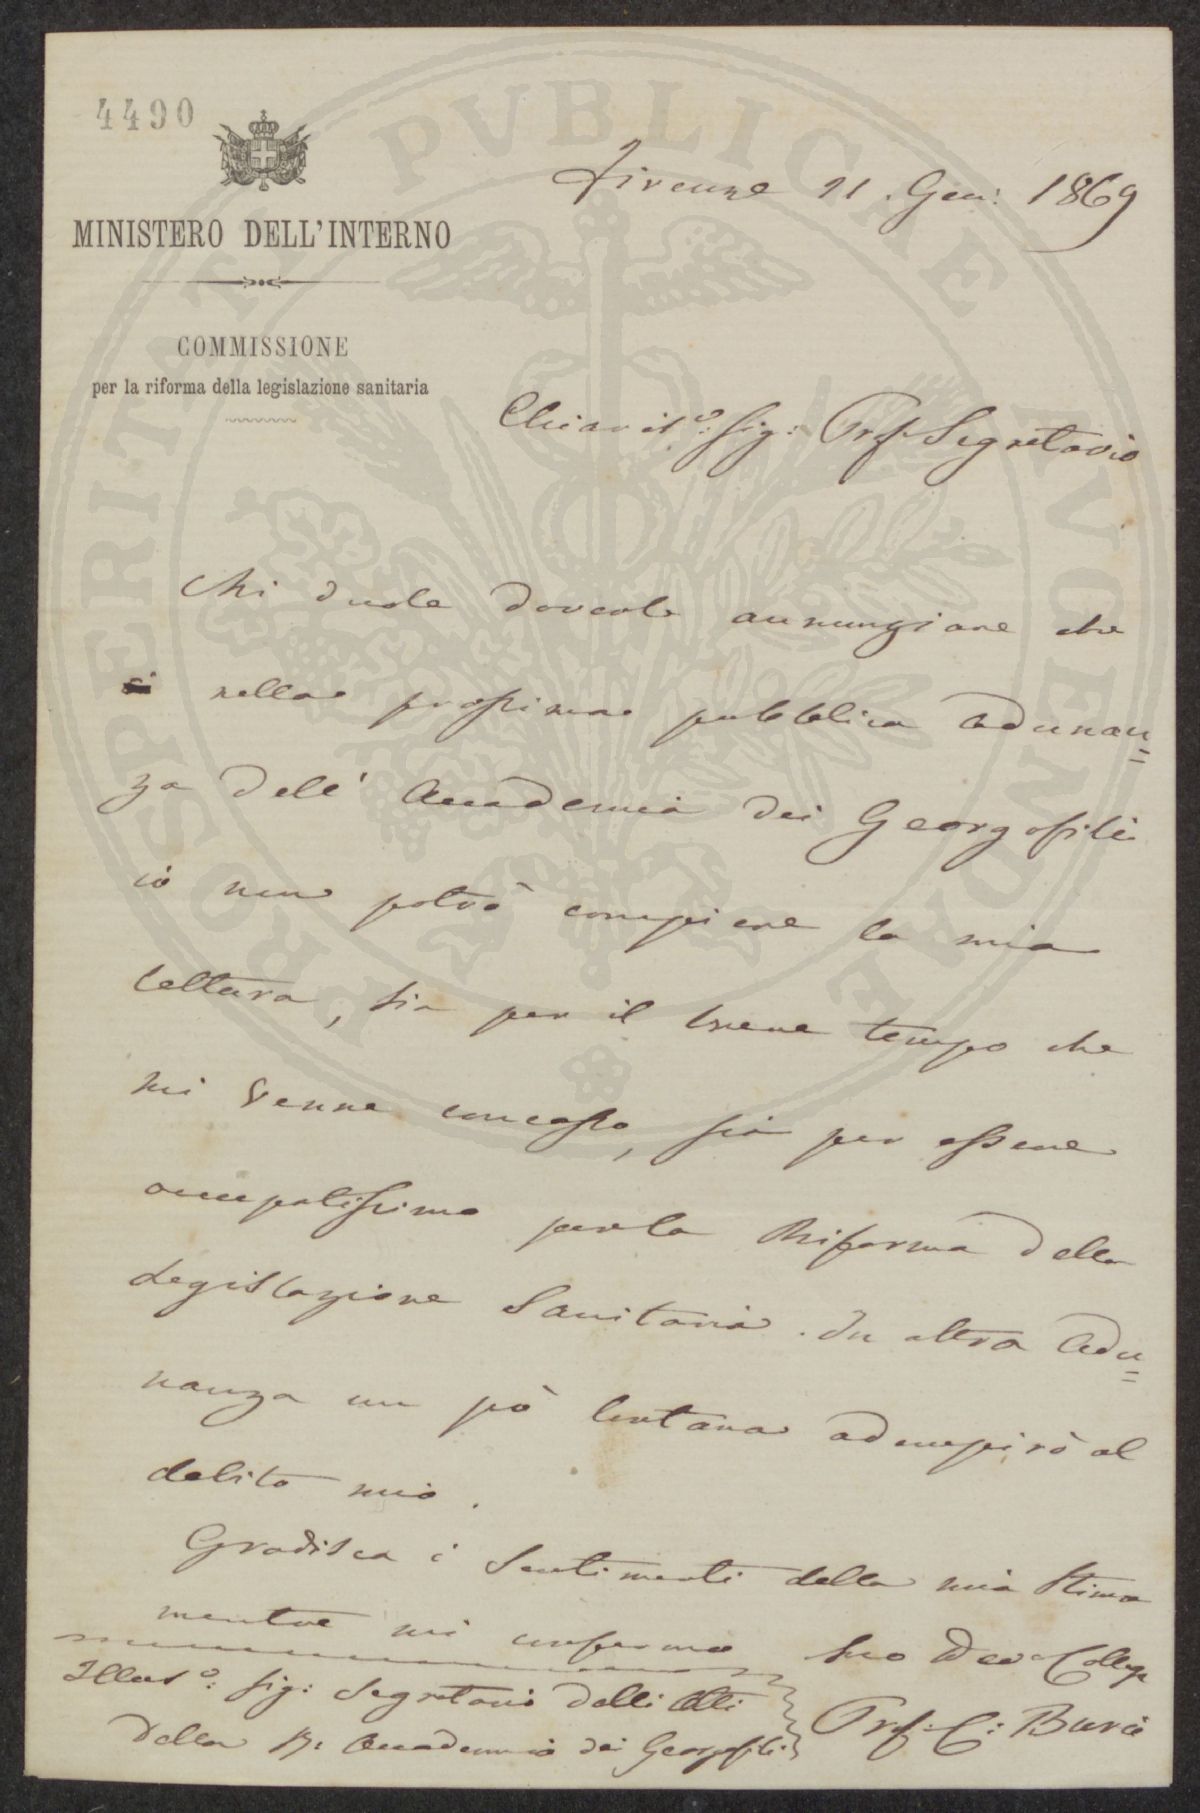 4490
Firenze 21. Gen: 1869
MINISTERO DELL'INTERNO
COMMISSIONE
per la riforma della legislazione sanitaria
Chiaris:o Sig: Prf. Segretario
Mi duole doverle annunziare che
nella prossima pubblica adunan=
za dell' Accademia dei Georgofili
io non potrò compiere la mia
lettura, sia per il breve tempo che
mi venne concesso, sia per essere
occupatissimo per la Riforma della
Legislazione Sanitaria. In altra Adu=
nanza un pò lontana adempirò al
debito mio.
Gradisca i Sentimenti della mia Stima
mentre mi confermo Suo Devo Collega
Illus:o Sig: Segretario delli Atti
della R: Accademia dei Georgofili
Prf: C: Burci
PROSPERITATI PVBLICAE AVGENDAE